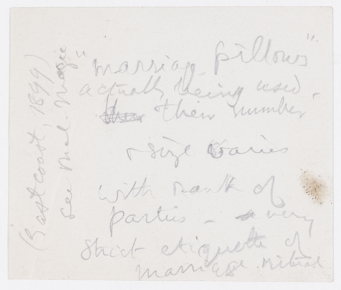 "marriage pillows"
actually being used.
their number
& size varies
with rank of
parties - a very
strict etiquette of
marriage ritual
(East coast, 1899)
see Mal. Magic